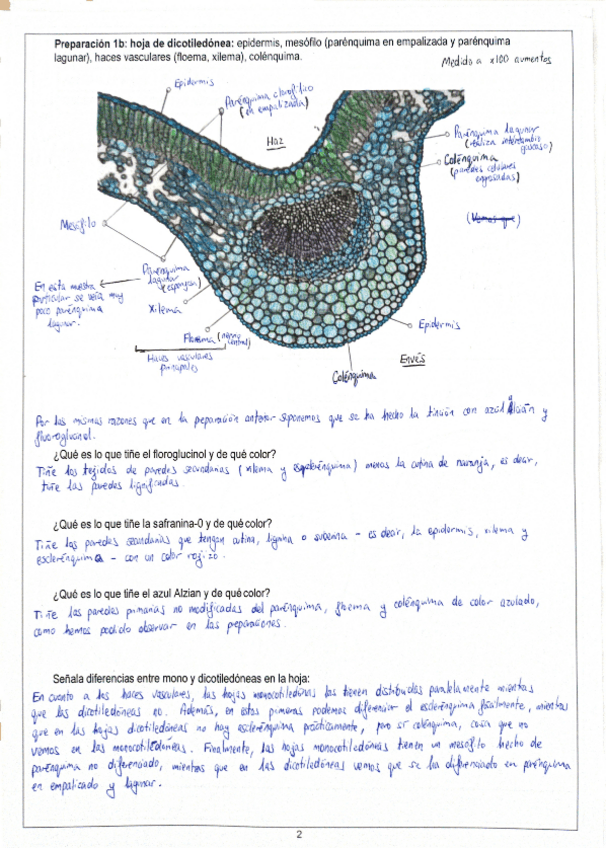 Preparación 1b: hoja de dicotiledónea: epidermis, mesófilo (parénquima en empalizada y parénquima
lagunar), haces vasculares (floema, xilema), colénquima.
Medido a x100 aumentos
Epidermis
Parénquima clorofílico
(en empalizada)
Haz
Parénquima lagunar
(realiza intercambio
gaseoso)
Colénquima
(paredes celulares
engrosadas)
(Vemos que)
Mesófilo
Parénquima
lagunar
(esponjoso)
En esta muestra
particular se vería muy
poco parénquima
lagunar.
Xilema
Floema (nervio
central)
Haces vasculares
principales
Epidermis
Envés
Colénquima
Por las mismas razones que en la preparación anterior suponemos que se ha hecho la tinción con azul Alcián y
floroglucinol.
¿Qué es lo que tiñe el floroglucinol y de qué color?
Tiñe los tejidos de paredes secundarias (xilema y esclerénquima) menos la cutina de naranja, es decir,
tiñe las paredes lignificadas.
¿Qué es lo que tiñe la safranina-0 y de qué color?
Tiñe las paredes secundarias que tengan cutina, lignina o suberina - es decir, la epidermis, xilema y
esclerénquima - con un color rojizo.
¿Qué es lo que tiñe el azul Alzian y de qué color?
Tiñe las paredes primarias no modificadas del parénquima, floema y colénquima de color azulado,
como hemos podido observar en las preparaciones.
Señala diferencias entre mono y dicotiledóneas en la hoja:
En cuanto a los haces vasculares, las hojas monocotiledóneas los tienen distribuidos paralelamente mientras
que las dicotiledóneas no. Además, en estas primeras podemos diferenciar el esclerénquima fácilmente, mientras
que en las hojas dicotiledóneas no hay esclerénquima prácticamente, pero sí colénquima, cosa que no
vemos en las monocotiledóneas. Finalmente, las hojas monocotiledóneas tienen un mesófilo hecho de
parénquima no diferenciado, mientras que en las dicotiledóneas vemos que se ha diferenciado en parénquima
en empalizado y lagunar.
2